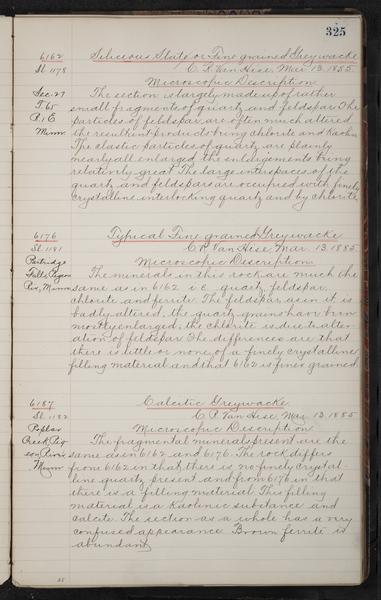 325
6162 Siliceous Slate or Fine grained Greywacke
Sl. 1178 C. R. Van Hise, Mar. 13. 1885.
Microscopic Description
Sec. 27 The section is largely made up of rather
T. 65 small fragments of quartz and feldspar. The
R. 1 E particles of feldspar are often much altered
Minn the resultant products being chlorite and kaolin.
The clastic particles of quartz are plainly
nearly all enlarged, the enlargements being
relatively great. The large interspaces of the
quartz and feldspars are occupied with finely
crystalline interlocking quartz and by chlorite.
6176 Typical Fine grained Greywacke.
Sl. 1181 C. R. Van Hise, Mar. 13. 1885
Partridge Microscopic Description
Falls, Pigeon The minerals in this rock are much the
Riv, Minn same as in 6162 i.e. quartz, feldspar,
chlorite and ferrite. The feldspar, as in it is
badly altered, the quartz grains have been
mostly enlarged; the chlorite is due to alter-
ation of feldspar. The differences are that
there is little or none of a finely crystalline
filling material and that 6162 is finer grained
6187 Calcitic Greywacke.
Sl. 1182 C. R. Van Hise, Mar. 13. 1885
Poplar Microscopic Description
Creek, Pig The fragmental minerals present are the
eon Riv. same as on 6162 and 6176. The rock differs
Minn from 6162 in that there is no finely crystal-
line quartz present and from 6176 in that
there is a filling material. This filling
material is a kaolinic substance and
calcite. The section as a whole has a very
confused appearance. Brown ferrite is
abundant